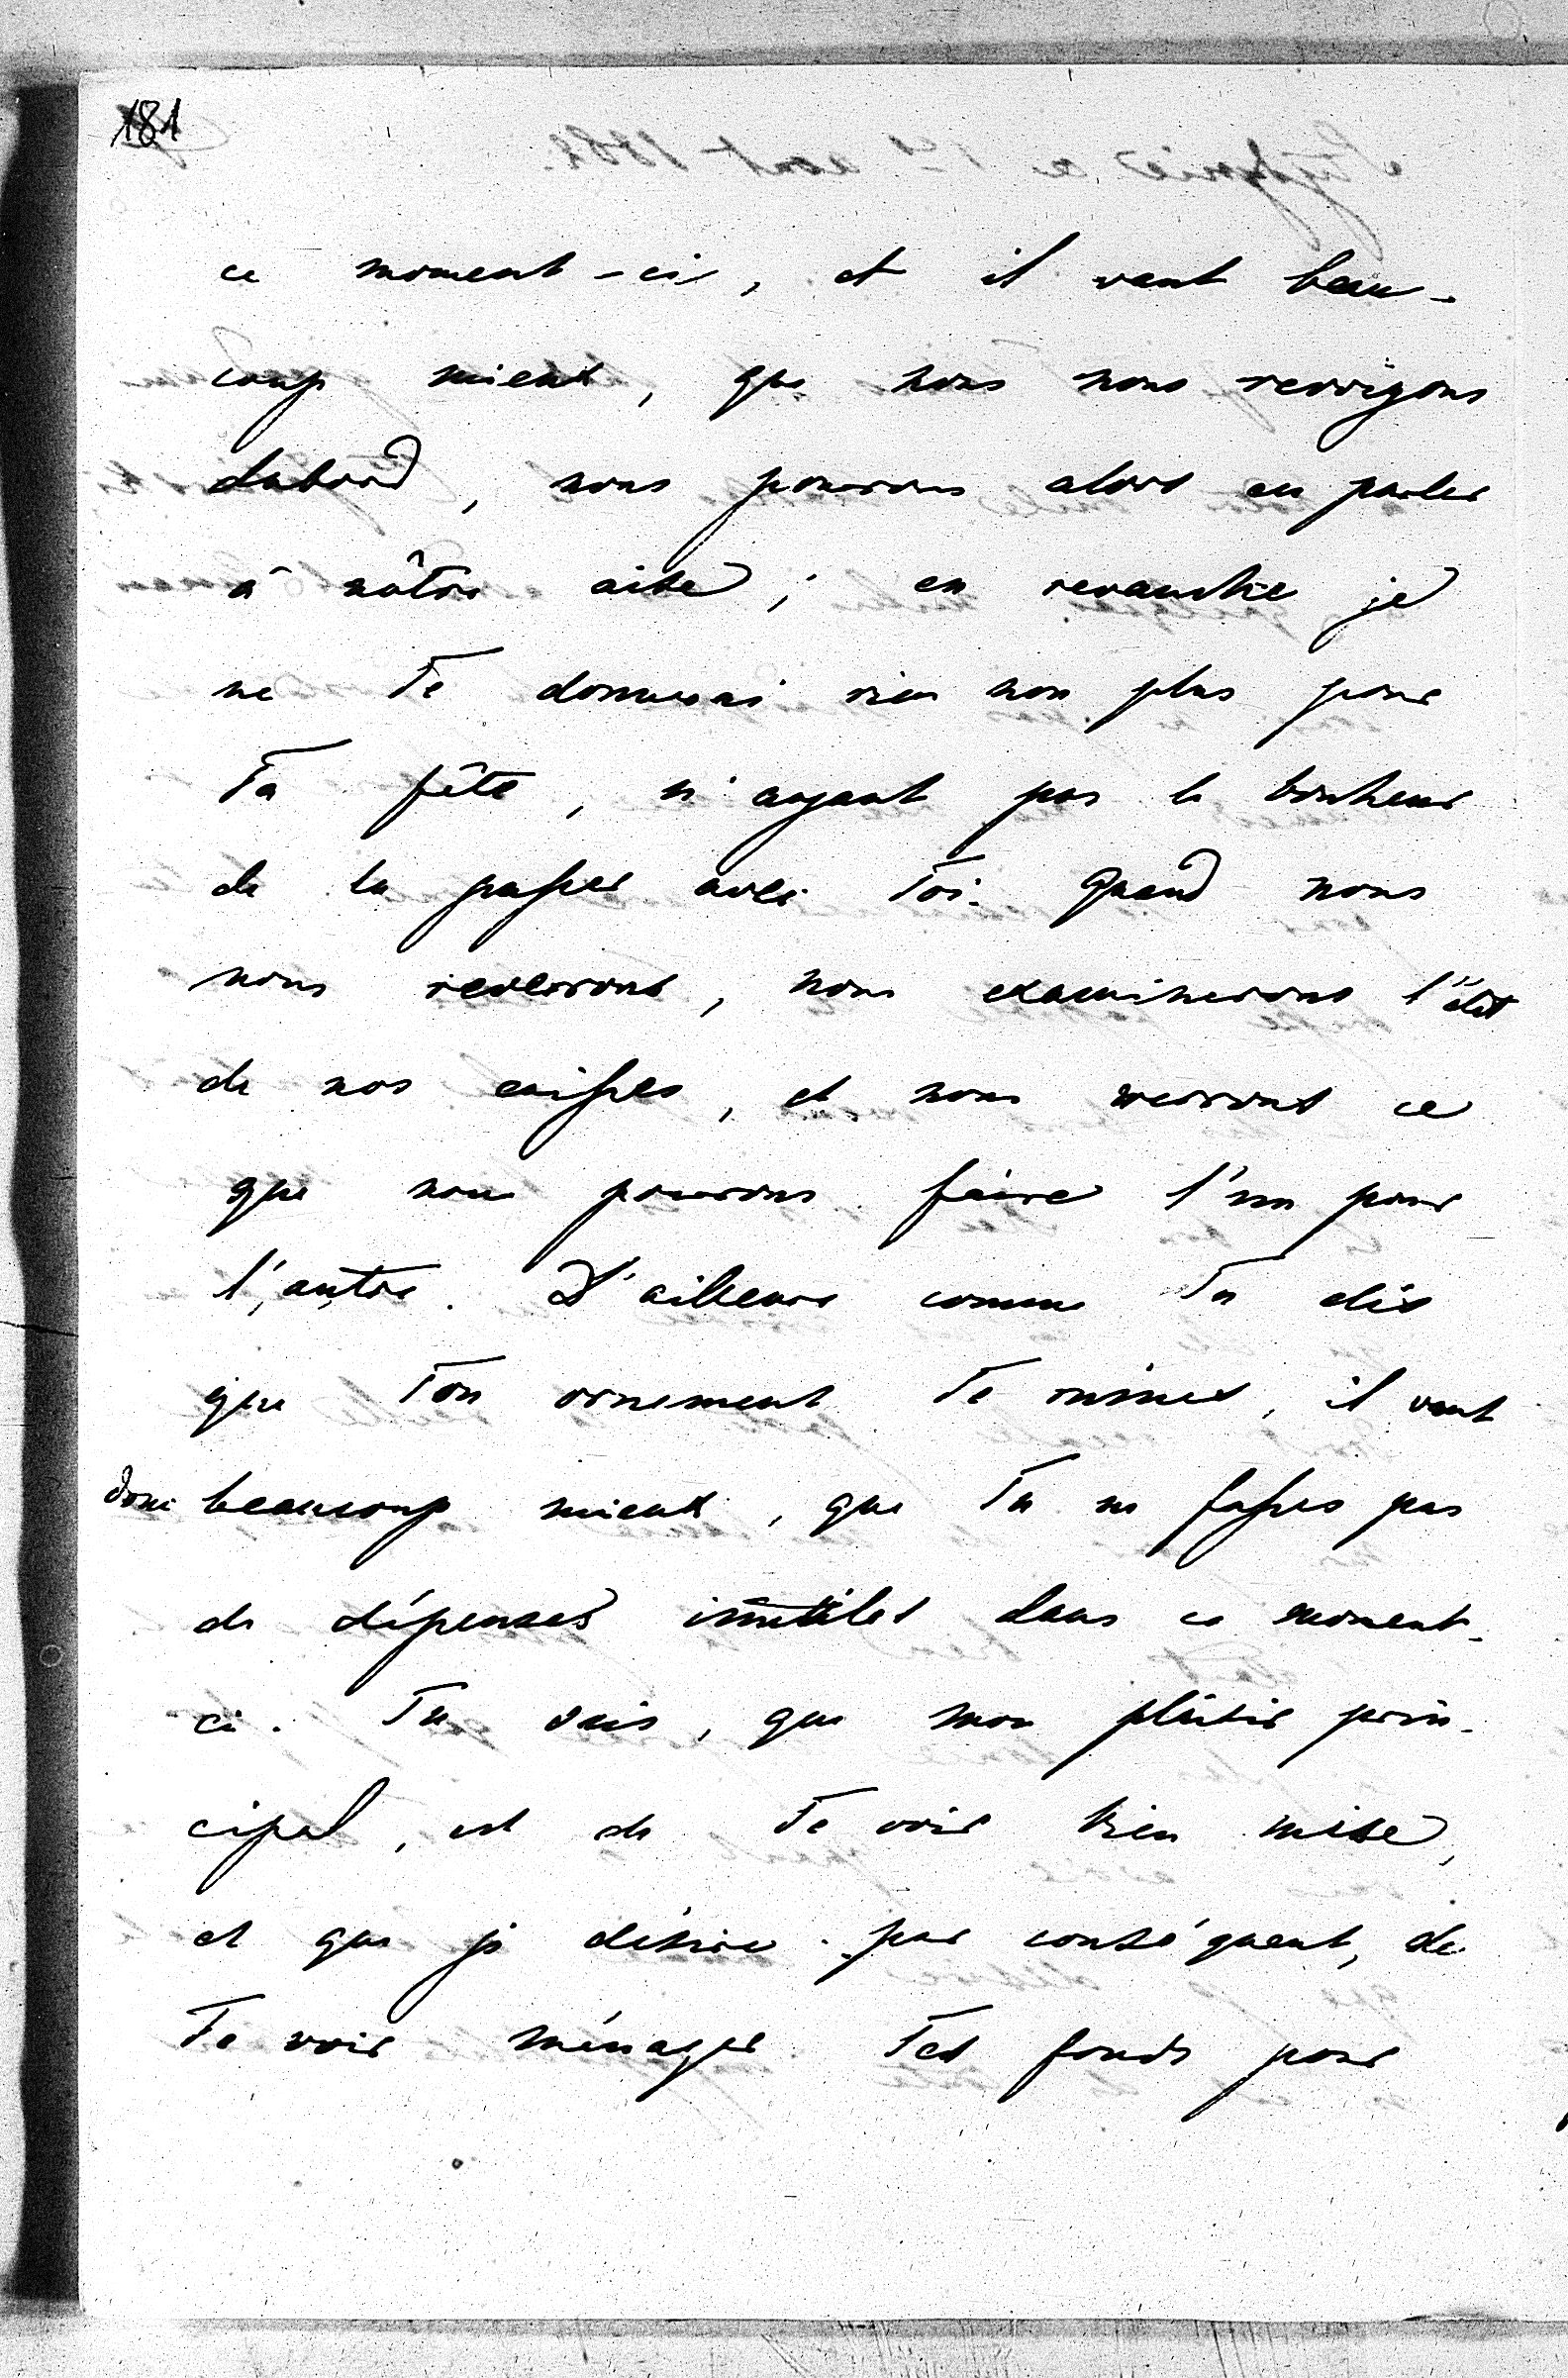 181
ce moment-ci, et il vaut beau-
coup mieux, que nous nous revoyons
dabord, nous pourrons alors en parler
à nôtre aise; en revanche je
ne Te donnerai rien non plus pour
Ta fête, n'ayant pas le bonheur
de la passer avec Toi. Quand nous
nous reverrons, nous examinerons l'état
de nos caisses, et nous verrons ce
que nous pourrons faire l'un pour
l'autre. D'ailleurs comme Tu dis
que Ton ornement Te ruines, il vaut
donc beaucoup mieux, que Tu ne fasses pas
de dépenses inutiles dans ce moment-
ci. Tu sais, que mon plaisir prin-
cipal, est de Te voir bien mise,
et que je désire par conséquent, de
Te voir ménager Tes fonds pour